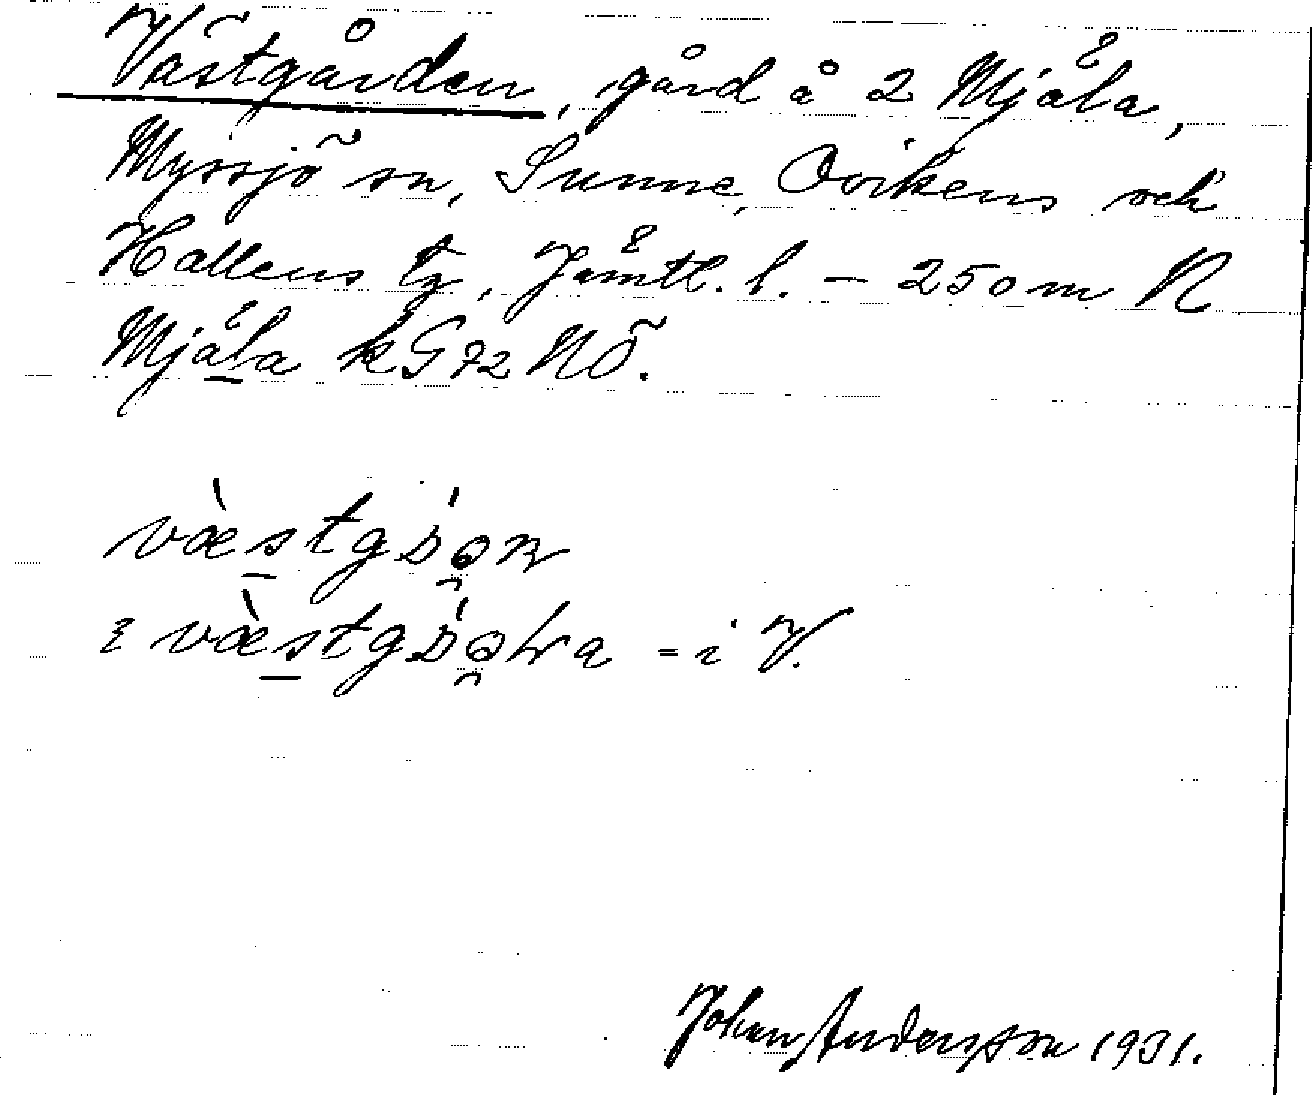 Västgården, gård å 2 Mjåla,
Myssjö sn, Sunne, Ovikens och
Hallens tg, Jämtl. l. – 250 m N
Mjåla kG72 NÖ.
væ̀stgɒ́ǫn
i væ̀stgɒ́ǫLa = i V.
Johan Andersson 1931.